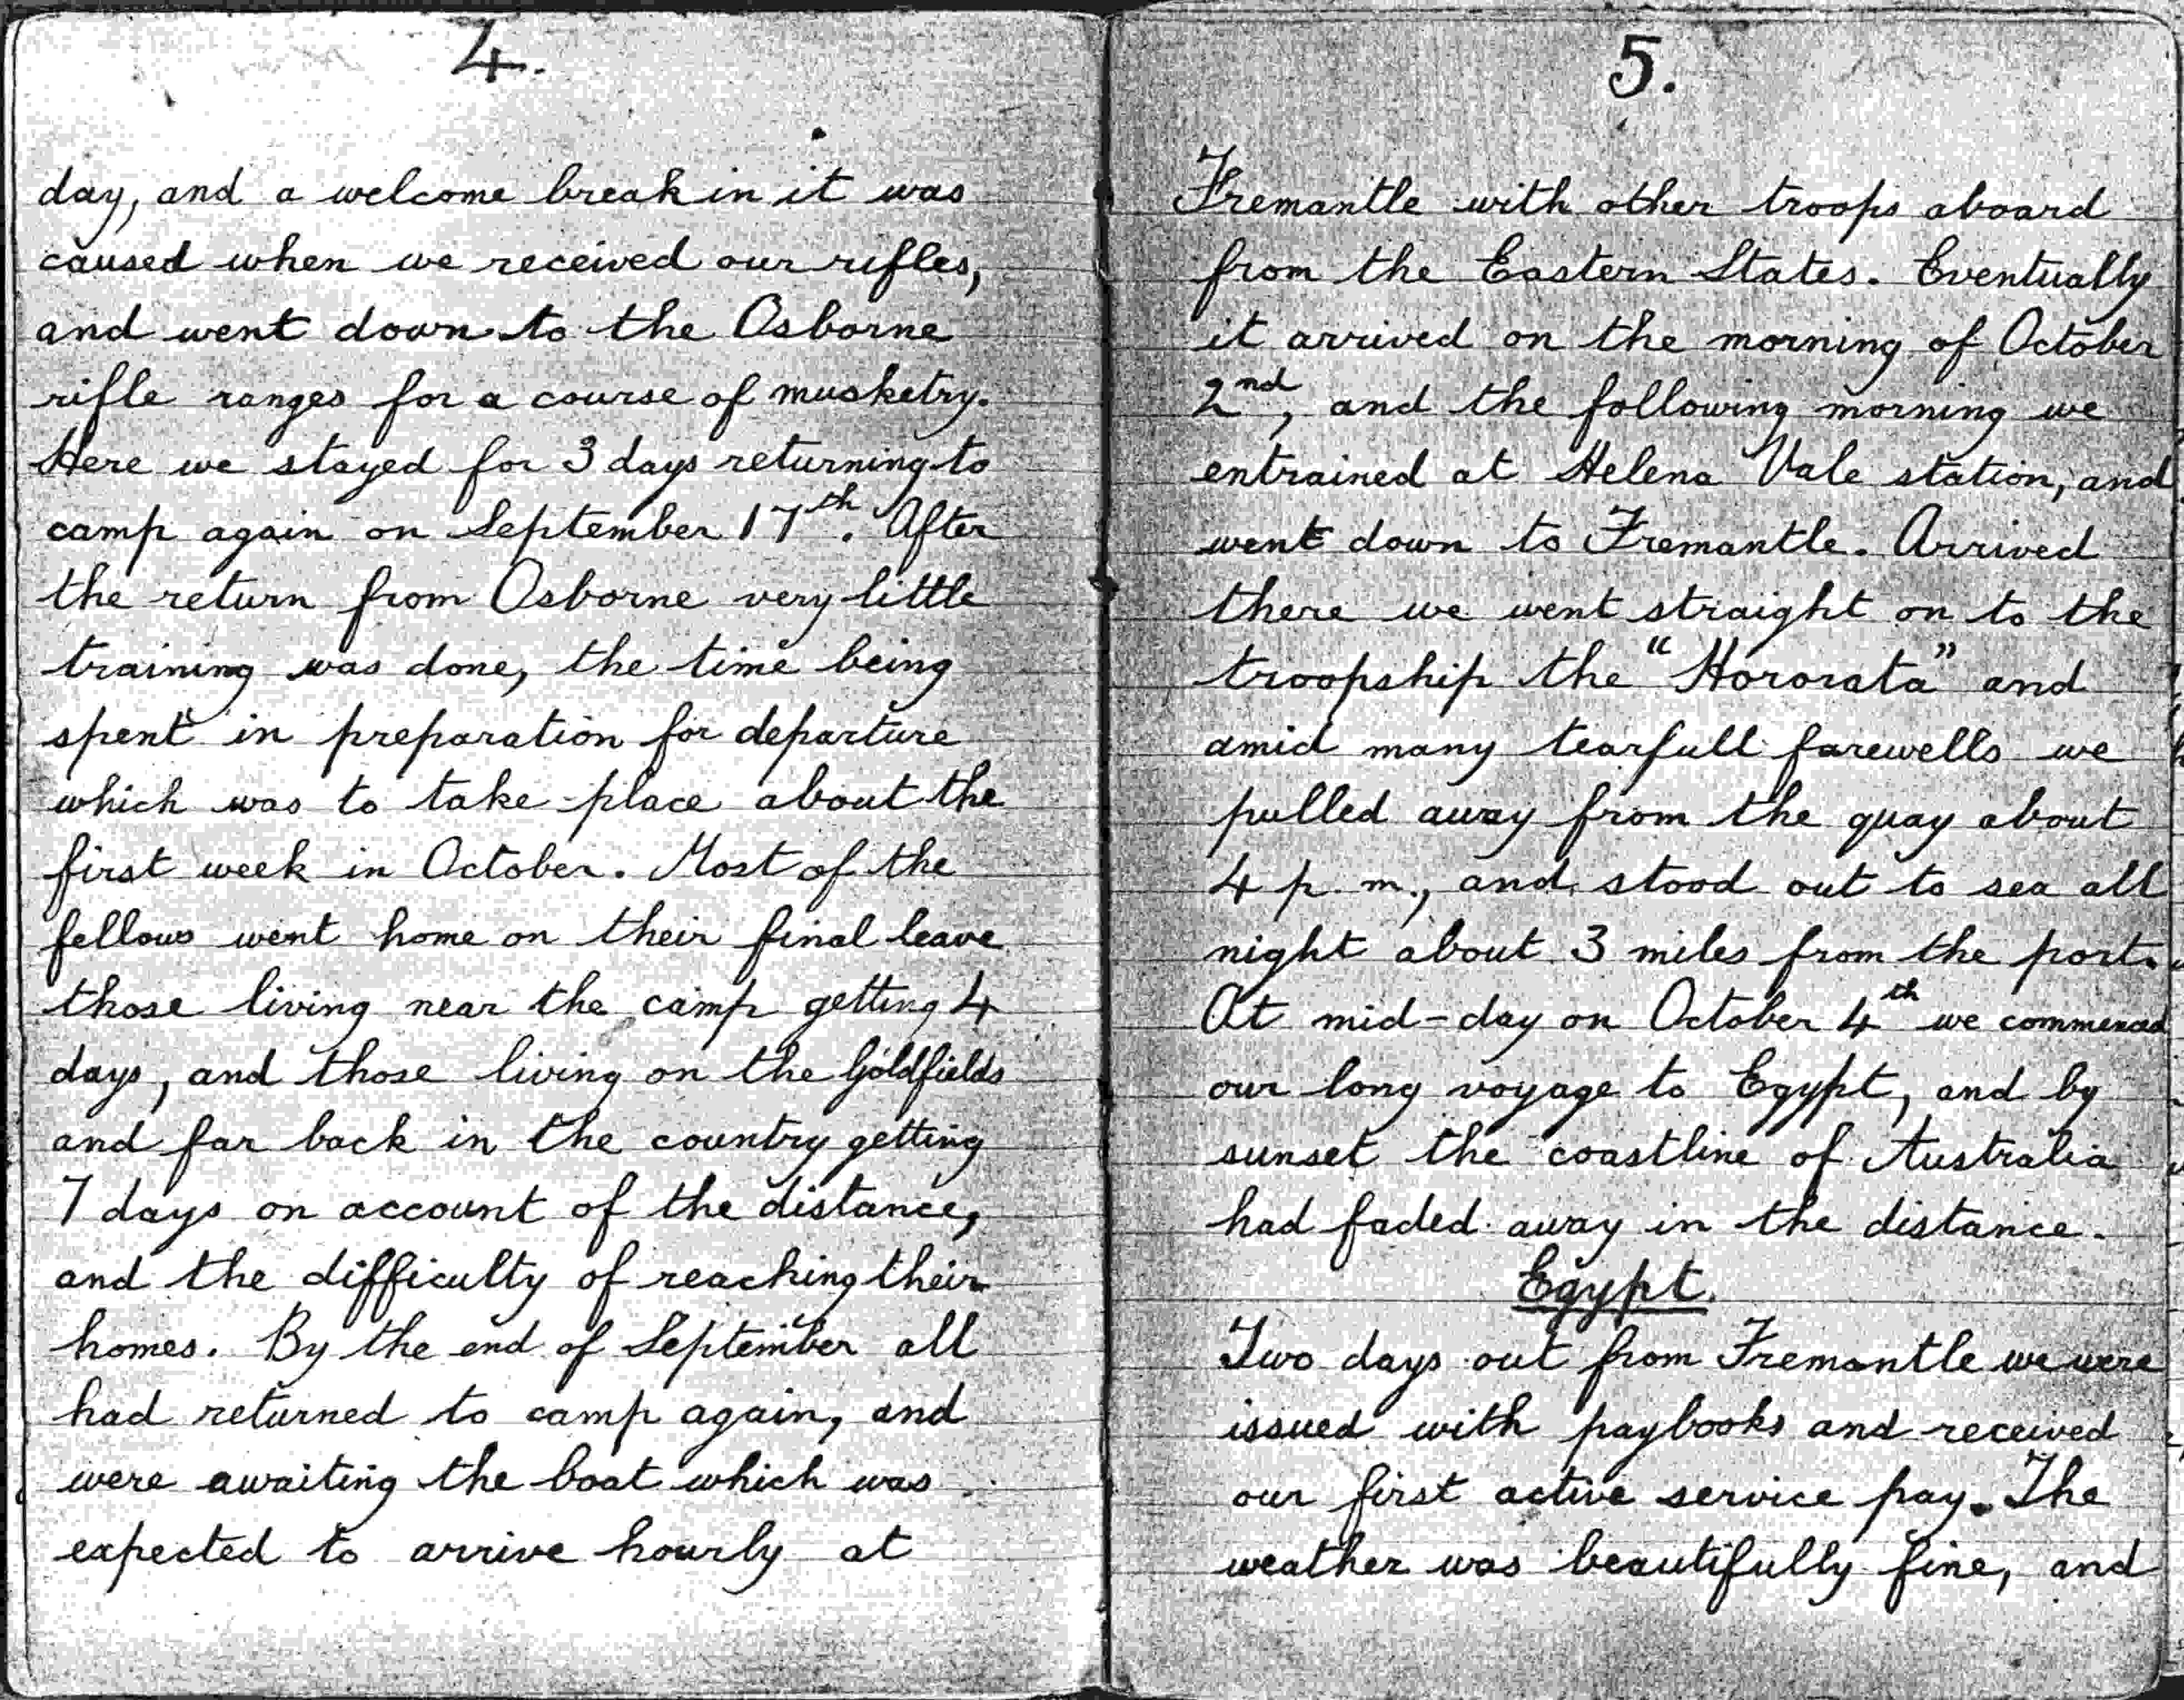 4.
day, and a welcome break in it was
caused when we received our rifles,
and went down to the Osborne
rifle ranges for a course of musketry.
Here we stayed for 3 days returning to
camp again on September 17th. After
the return from Osborne very little
training was done, the time being
spent in preparation for departure
which was to take place about the
first week in October. Most of the
fellows went home on their final leave
those living near the camp getting 4
days, and those living on the Goldfields
and far back in the country getting
7 days on account of the distance,
and the difficulty of reaching their
homes. By the end of September all
had returned to camp again, and
were awaiting the boat which was
expected to arrive hourly at
5.
Fremantle with other troops aboard
from the Eastern States. Eventually
it arrived on the morning of October
2nd, and the following morning we
entrained at Helena Vale station, and
went down to Fremantle. Arrived
there we went straight on to the
troopship the "Hororata" and
amid many tearfull farewells we
pulled away from the quay about
4 p.m., and stood out to sea all
night about 3 miles from the port.
At mid-day on October 4th we commenced
our long voyage to Egypt, and by
sunset the coastline of Australia
had faded away in the distance.
Egypt.
Two days out from Fremantle we were
issued with paybooks and received
our first active service pay. The
weather was beautifully fine, and